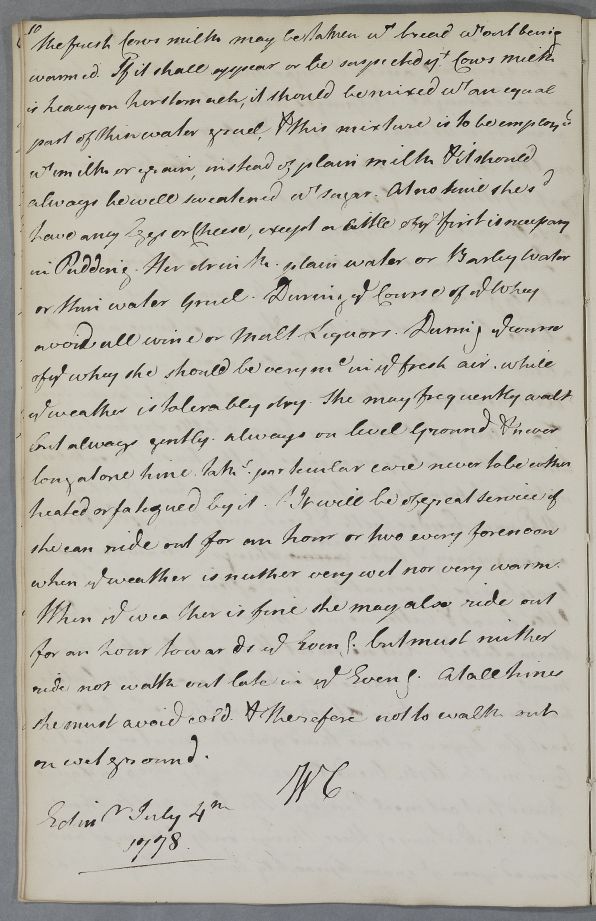 10
the fresh Cows milk may be taken wt bread wtout being
warmed If it shall appear or be suspected yt Cows milk
is heavy on her stomach, it should be mixed wt an equal
part of thin water gruel, & this mixture is to be employ'd
wt milk or grain, instead of plain milk & it should
always be well sweetened wt sugar. At no time she sd
have any Eggs or Cheese, except a little of ye first is necessary
in Pudding. Her drink plain water or Barley Water
or thin water Gruel. During ye Course of ye Whey
avoid all wine or Malt Liquors. During ye course
of ye whey she should be very mc in ye fresh air. while
ye weather is tolerably dry. She may frequently walk
but always gently. always on level Ground. & never
long at one time. takg. particular care never to be either
heated or fatigued by it. It will be of great service if
she can ride out for an hour or two every forenoon
when ye weather is neither very wet nor very warm.
When ye weather is fine she may also ride out
for an hour towards ye Eveng. but must neither
ride nor walk out late in ye Eveng. At all times
she must avoid cold. & therefore not to walk out
on wet ground.
WC
Edinr July 4th
1778.